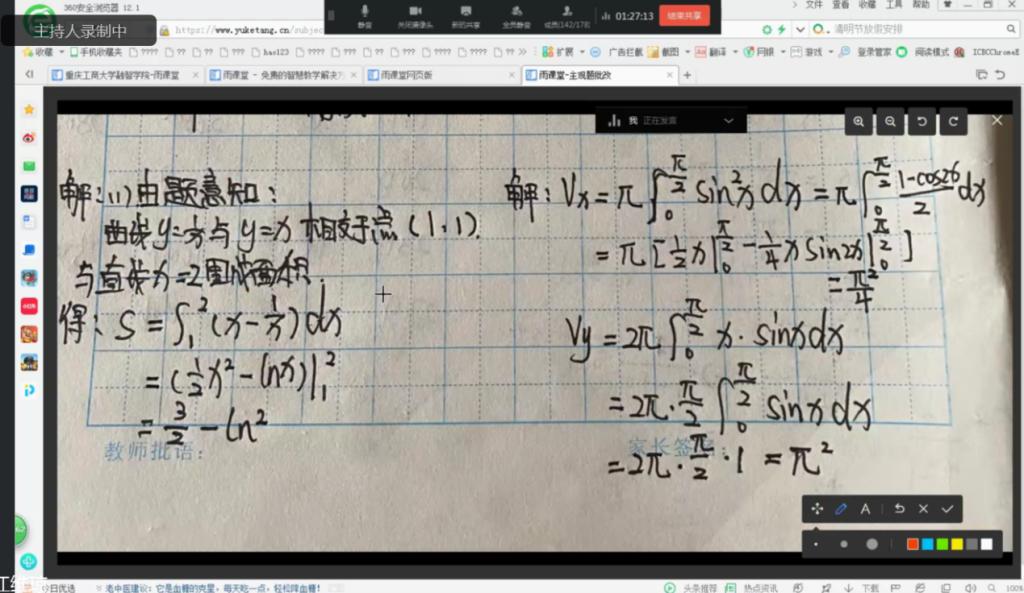 360安全浏览器 12.1
文件 查看 收藏 工具 帮助
主持人录制中
静音
关闭摄像头
新的共享
全员静音
成员(142/178)
01:27:13
结束共享
https://www.yuketang.cn/subjec
清明节放假安排
收藏
手机收藏夹
hao123
扩展
广告拦截
截图
翻译
网银
游戏
登录管家
阅读模式
ICBCChromeE
重庆工商大学融智学院-雨课堂
雨课堂 - 免费的智慧教学解决方
雨课堂网页版
雨课堂-主观题批改
我 正在发言
解:(1)由题意知:
曲线y=1/x与y=x相交于点(1,1).
与直线x=2围成面积.
得: S = ∫₁² (x - 1/x) dx
= (½x² - lnx)|₁²
= 3/2 - ln2
解: Vx = π∫₀^(π/2) sin²x dx = π∫₀^(π/2) (1-cos2x)/2 dx
= π[½x|₀^(π/2) - ¼x sin2x|₀^(π/2)]
= π²/4
Vy = 2π∫₀^(π/2) x·sinx dx
= 2π·π/2 ∫₀^(π/2) sinx dx
= 2π·π/2·1 = π²
教师批语:
家长签字:
今日优选
老中医建议: 它是血糖的克星, 每天吃一点, 轻松降血糖!
头条推荐
热点资讯
下载
100%